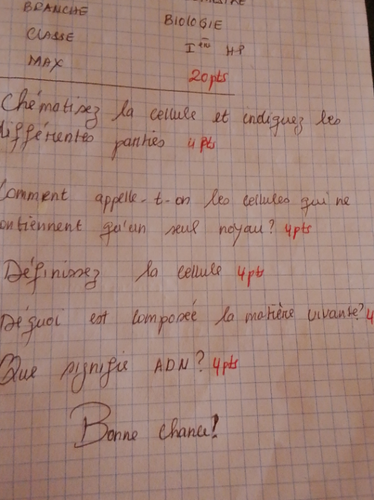 BRANCHE
BIOLOGIE
CLASSE
Ière HP
MAX
20pts
Chématisez la cellule et indiquez les
différentes parties 4pts
Comment appelle-t-on les cellules qui ne
contiennent qu'un seul noyau? 4pts
Définissez la cellule 4pts
Déquoi est composée la matière vivante? 4
Que signifie ADN? 4pts
Bonne chance!